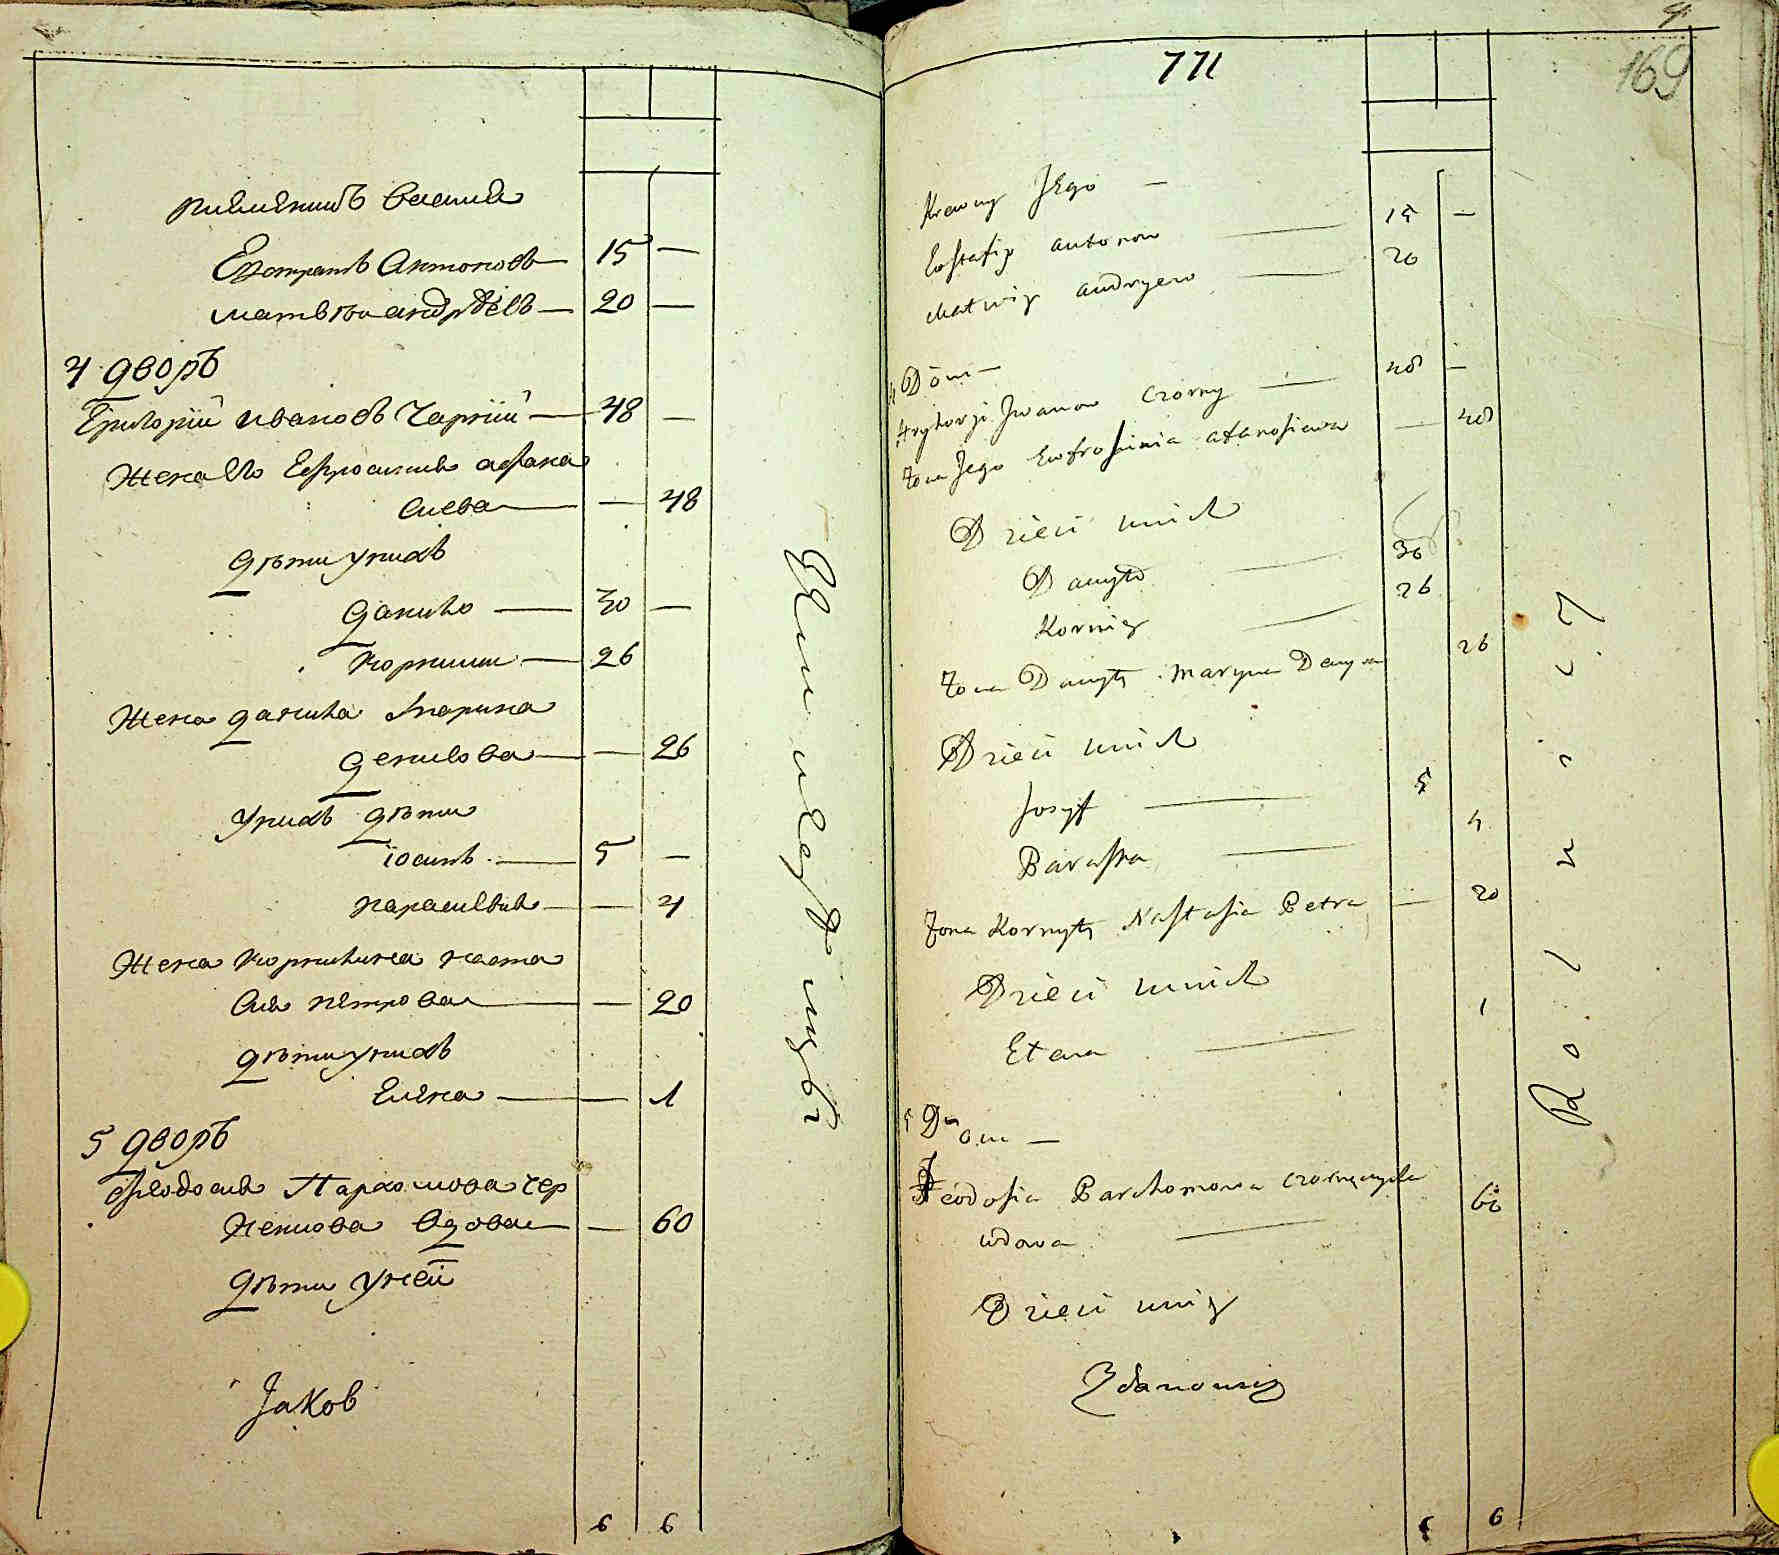 Евстратъ Антоновъ — 15 —
матвѣи андрѣевъ — 20 —
4 дворъ
Григорїй ивановъ Чарнїй — 48 —
Жена его Ефросинія афана
сиева — — 48
дѣти унихъ
данило — 30 —
корнили — 26
Жена данила марина
денисова — — 26
унихъ дѣти
їосипъ — 5 —
парасковия — — 4
Жена корнилина наста
сия петрова — — 20
дѣти унихъ
Елена — — 1
5 дворъ
феодосия Пархомова чер
ненкова вдова — — 60
дѣти унеї
Jakob
6 6
771
169
Krewny Jego —
Eostafiy antonow — 15 —
Matwiy andryew — 20
4 Dom —
Hryhorji Jwanow Czorny — 48 —
Żona Jego Eufrosinia afanosiewa — 48
Dzieci unich
Danyło — 30
Korniy — 26
Żona Danyły Maryna Denys 26
Dzieci unich
Josyf — 5
Paraska — 4
Żona Kornyły Nastasia Petra — 20
Dzieci unich
Elena — 1
5 Dom —
Feodosia Parchomowa
wdowa — 60
Dzieci uniy
Zdanowicz
6 6
Rolnicy